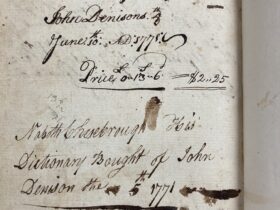 John Denisons
June 10. AD. 1771
Price £0-13-6 = $2.25
Nabth Chesebrough His
Dictionary Bought of John
Denison the 5th 1771